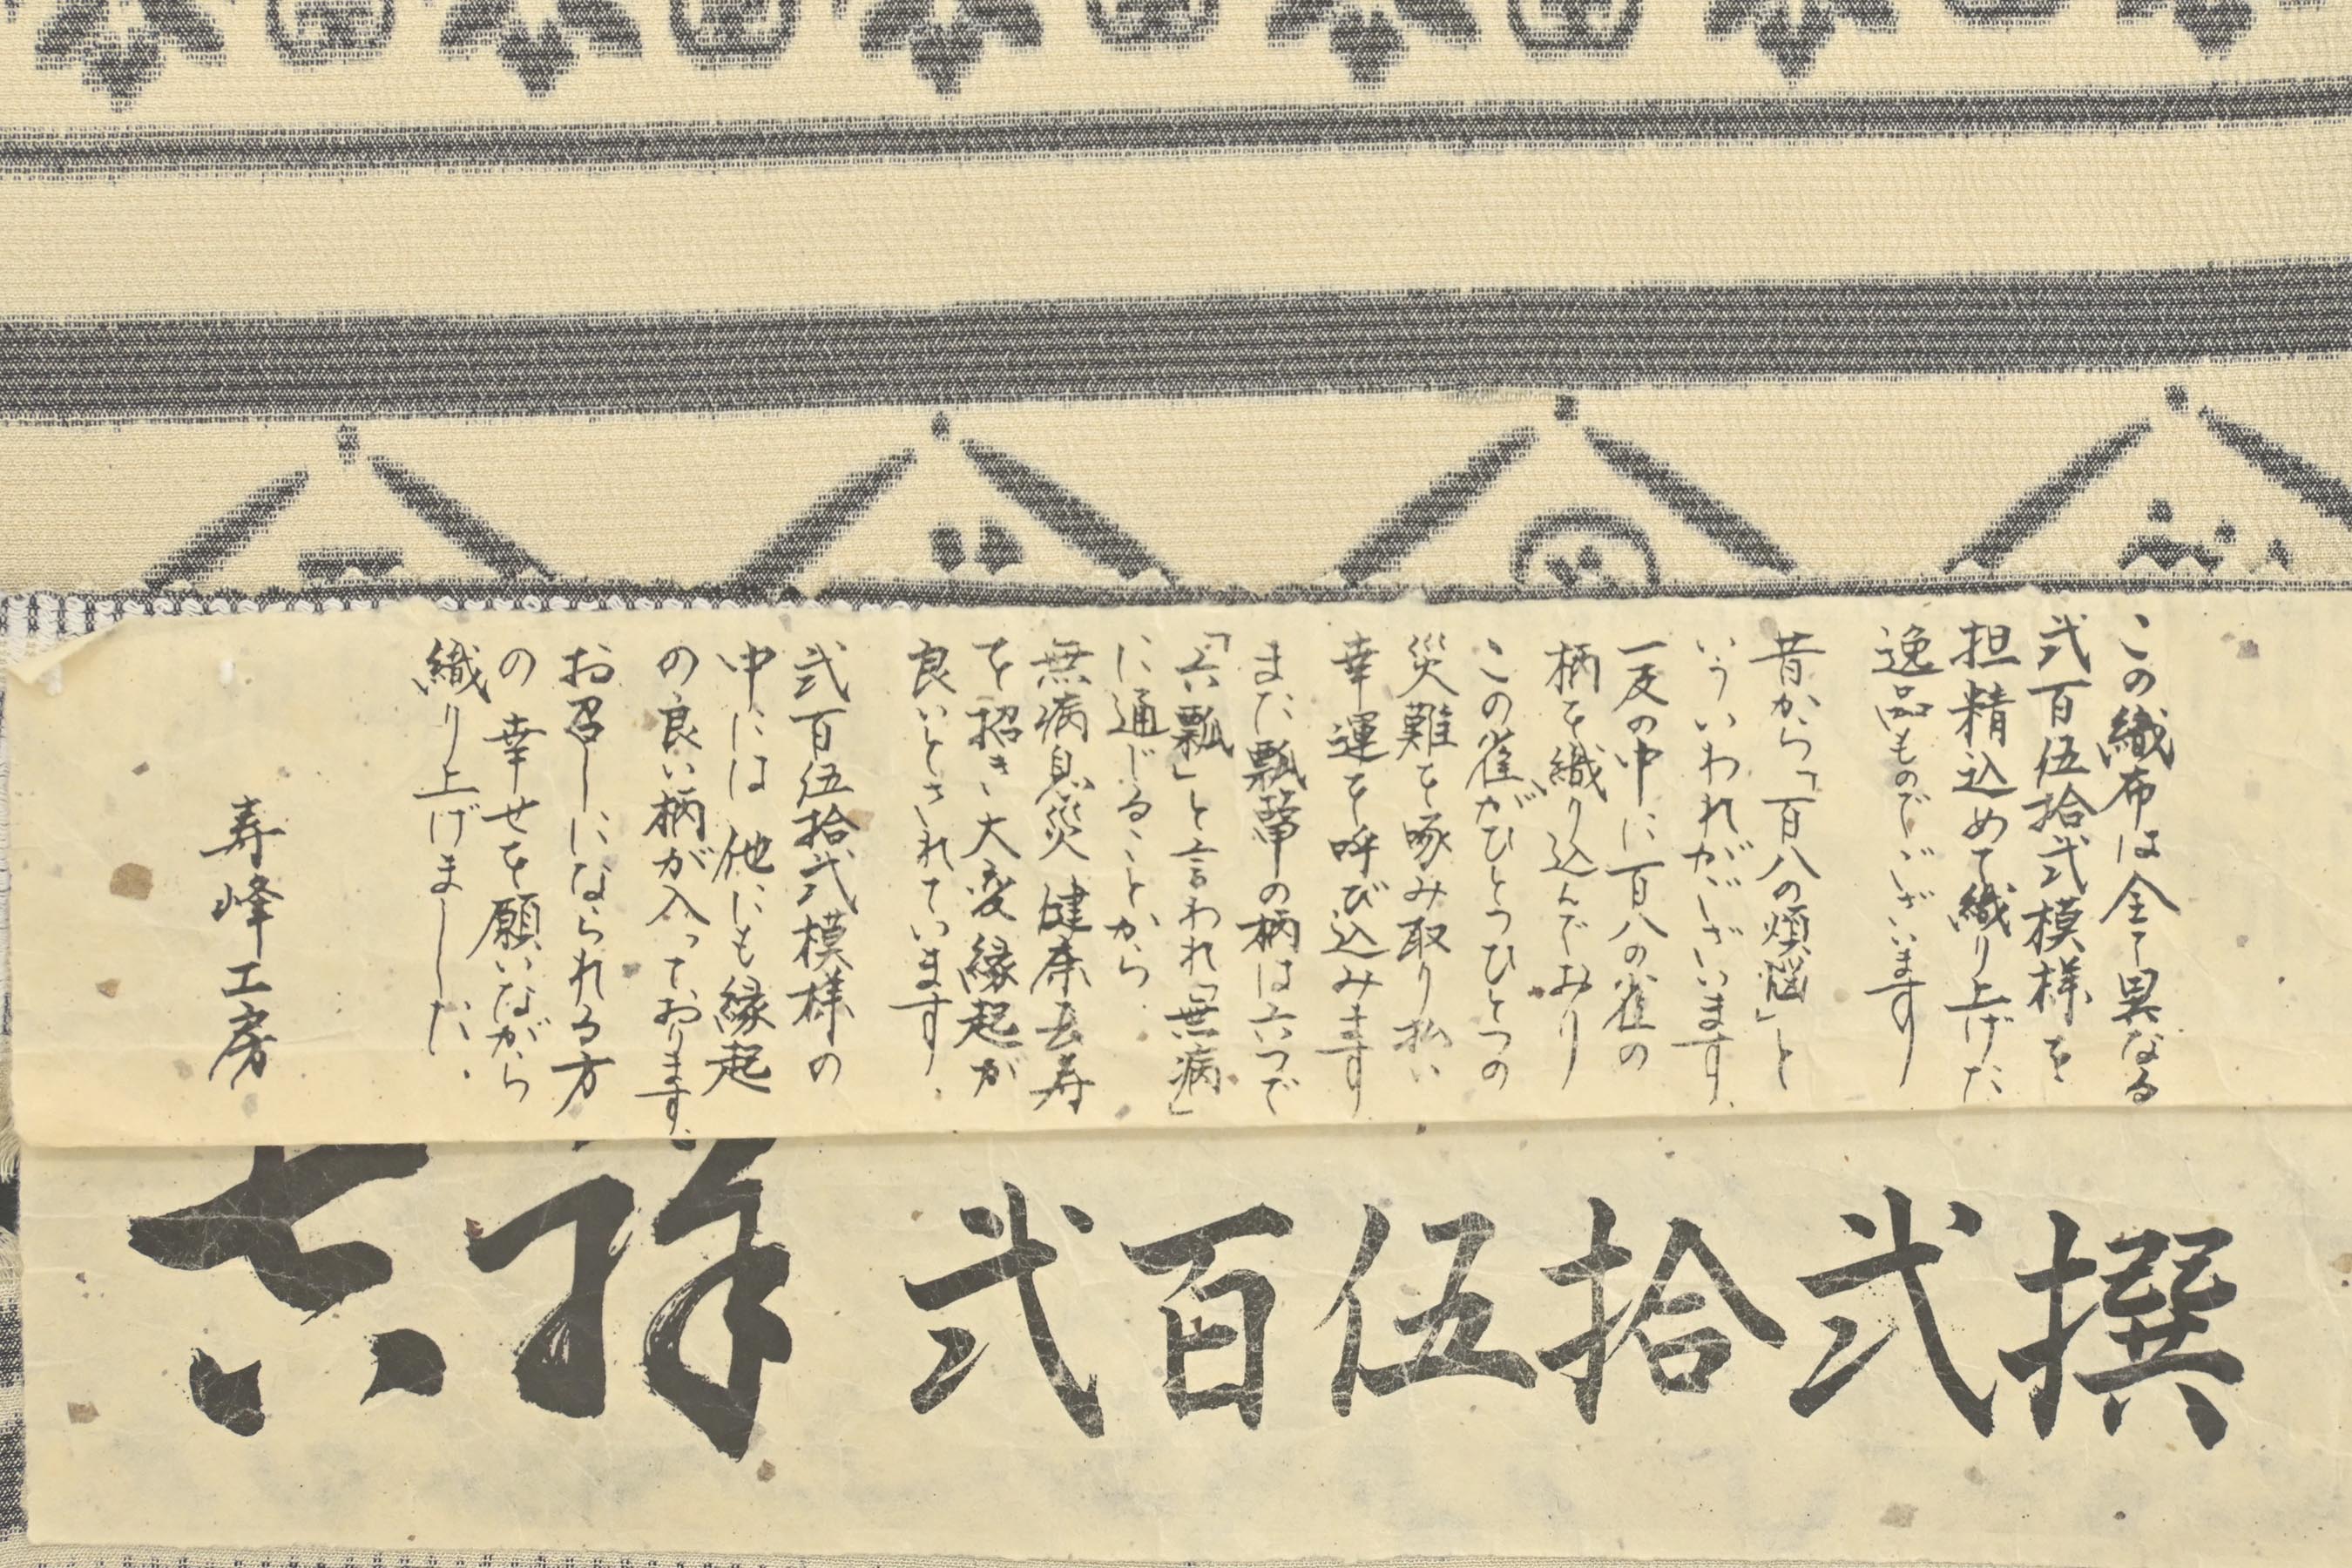 この織布は全て異なる
弐百伍拾弐模様を
担精込めて織り上げた
逸品ものでございます
昔から「百八の煩悩」と
いういわれがございます、
一反の中に百八の雀の
柄を織り込んでおり
この雀がひとつひとつの
災難を啄み取り払い
幸運を呼び込みます
また瓢箪の柄は六つで
「六瓢」と言われ「無病」
に通じることから、
無病息災 健康長寿
を招き、大変縁起が
良いとされています、
弐百伍拾弐模様の
中には他にも縁起
の良い柄が入っております、
お召しになられる方
の幸せを願いながら
織り上げました、
寿峰工房
撰弐拾伍百弐
祥